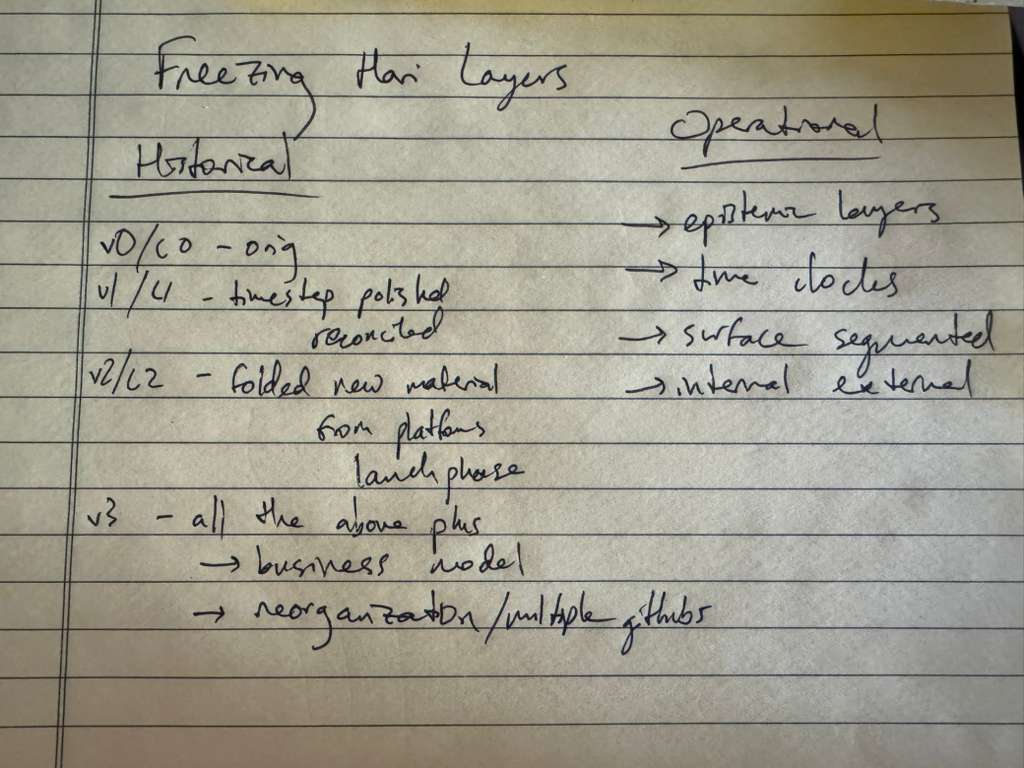 Freezing Hari Layers
Historical
v0/c0 - orig
v1/c1 - timestep polished
reconciled
v2/c2 - folded new material
from platforms
launch phase
v3 - all the above plus
→ business model
→ reorganization/multiple githubs
Operational
→ epistemic layers
→ time clocks
→ surface segmented
→ internal external